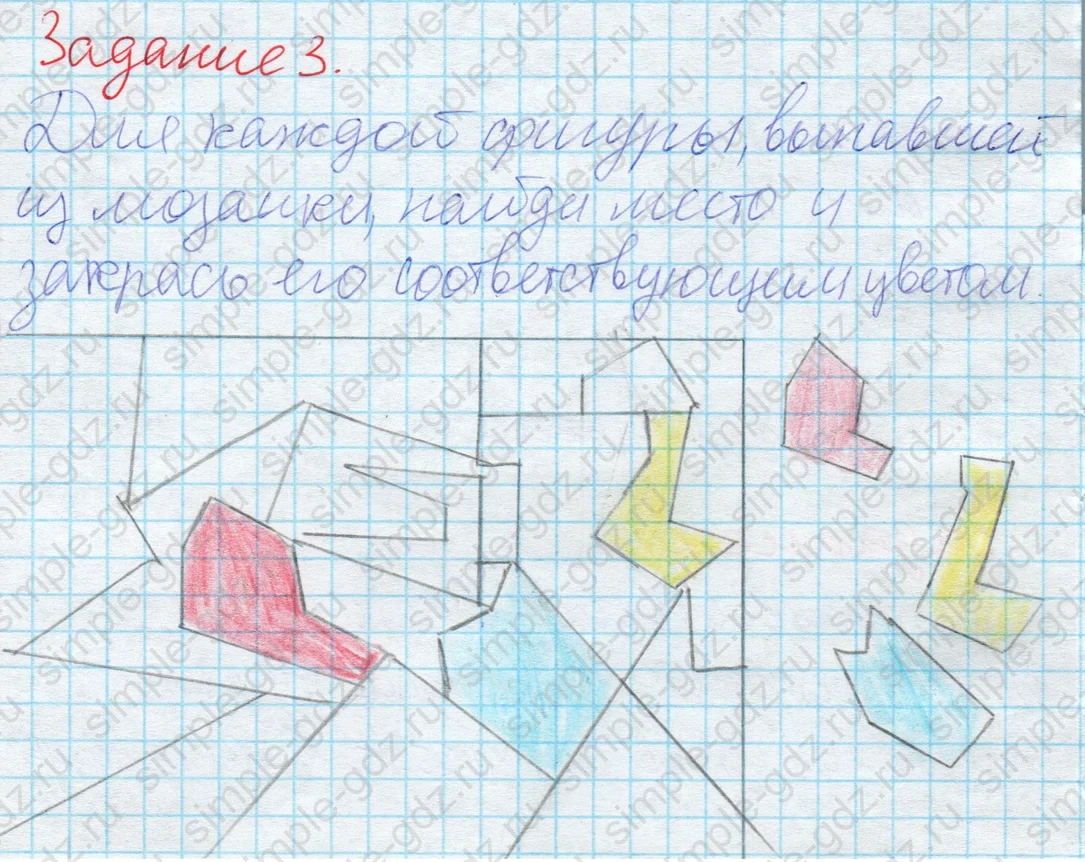 Задание 3.
Для каждой фигуры, выпавшей
из мозаики, найди место и
закрась его соответствующим цветом.
simple-gdz.ru